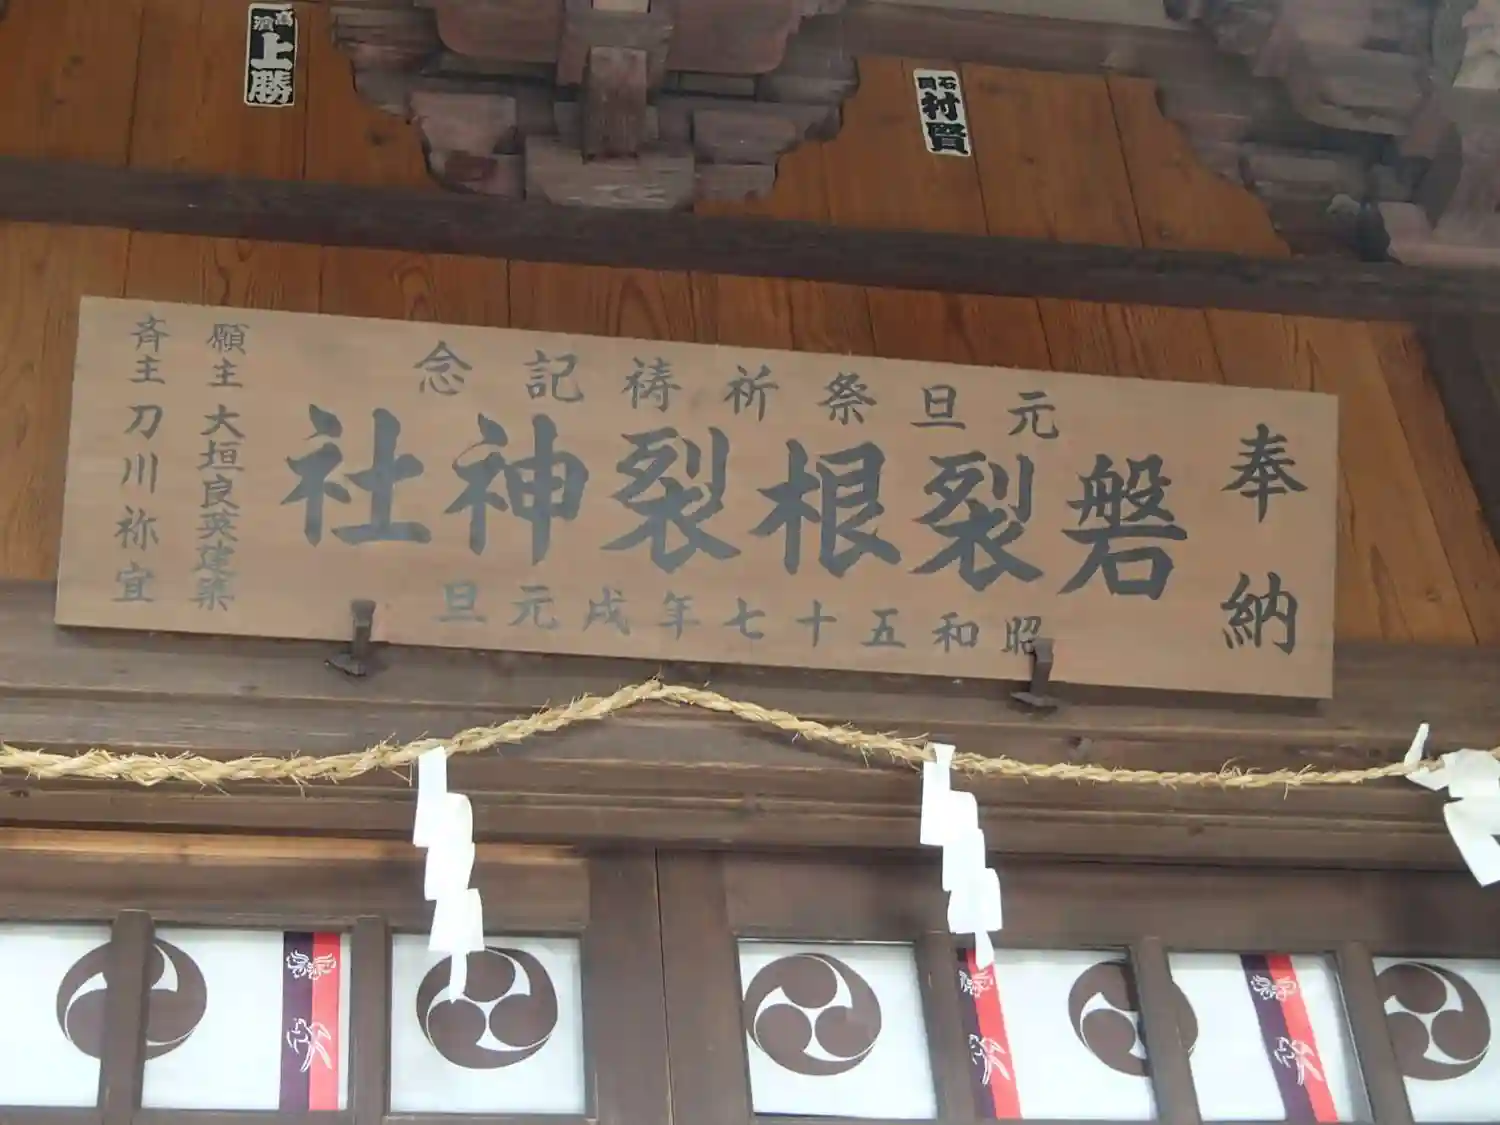 高濱上勝
石岡村賢
奉納
元旦祭祈祷記念
磐裂根裂神社
昭和五十七年戌元旦
願主 大垣良英建築
斉主 刀川祢宜